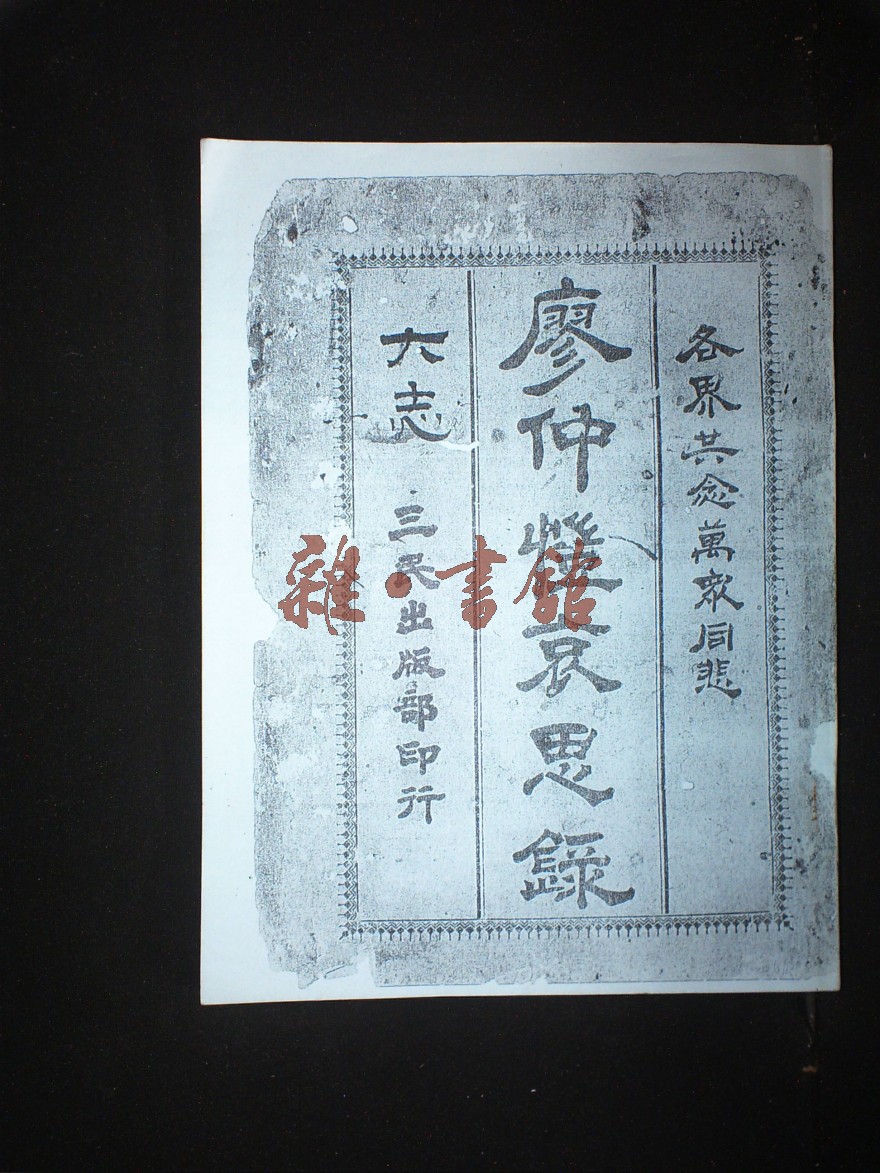 各界共念萬衆同悲
廖仲愷哀思錄
大志
三民出版部印行
雜·書館